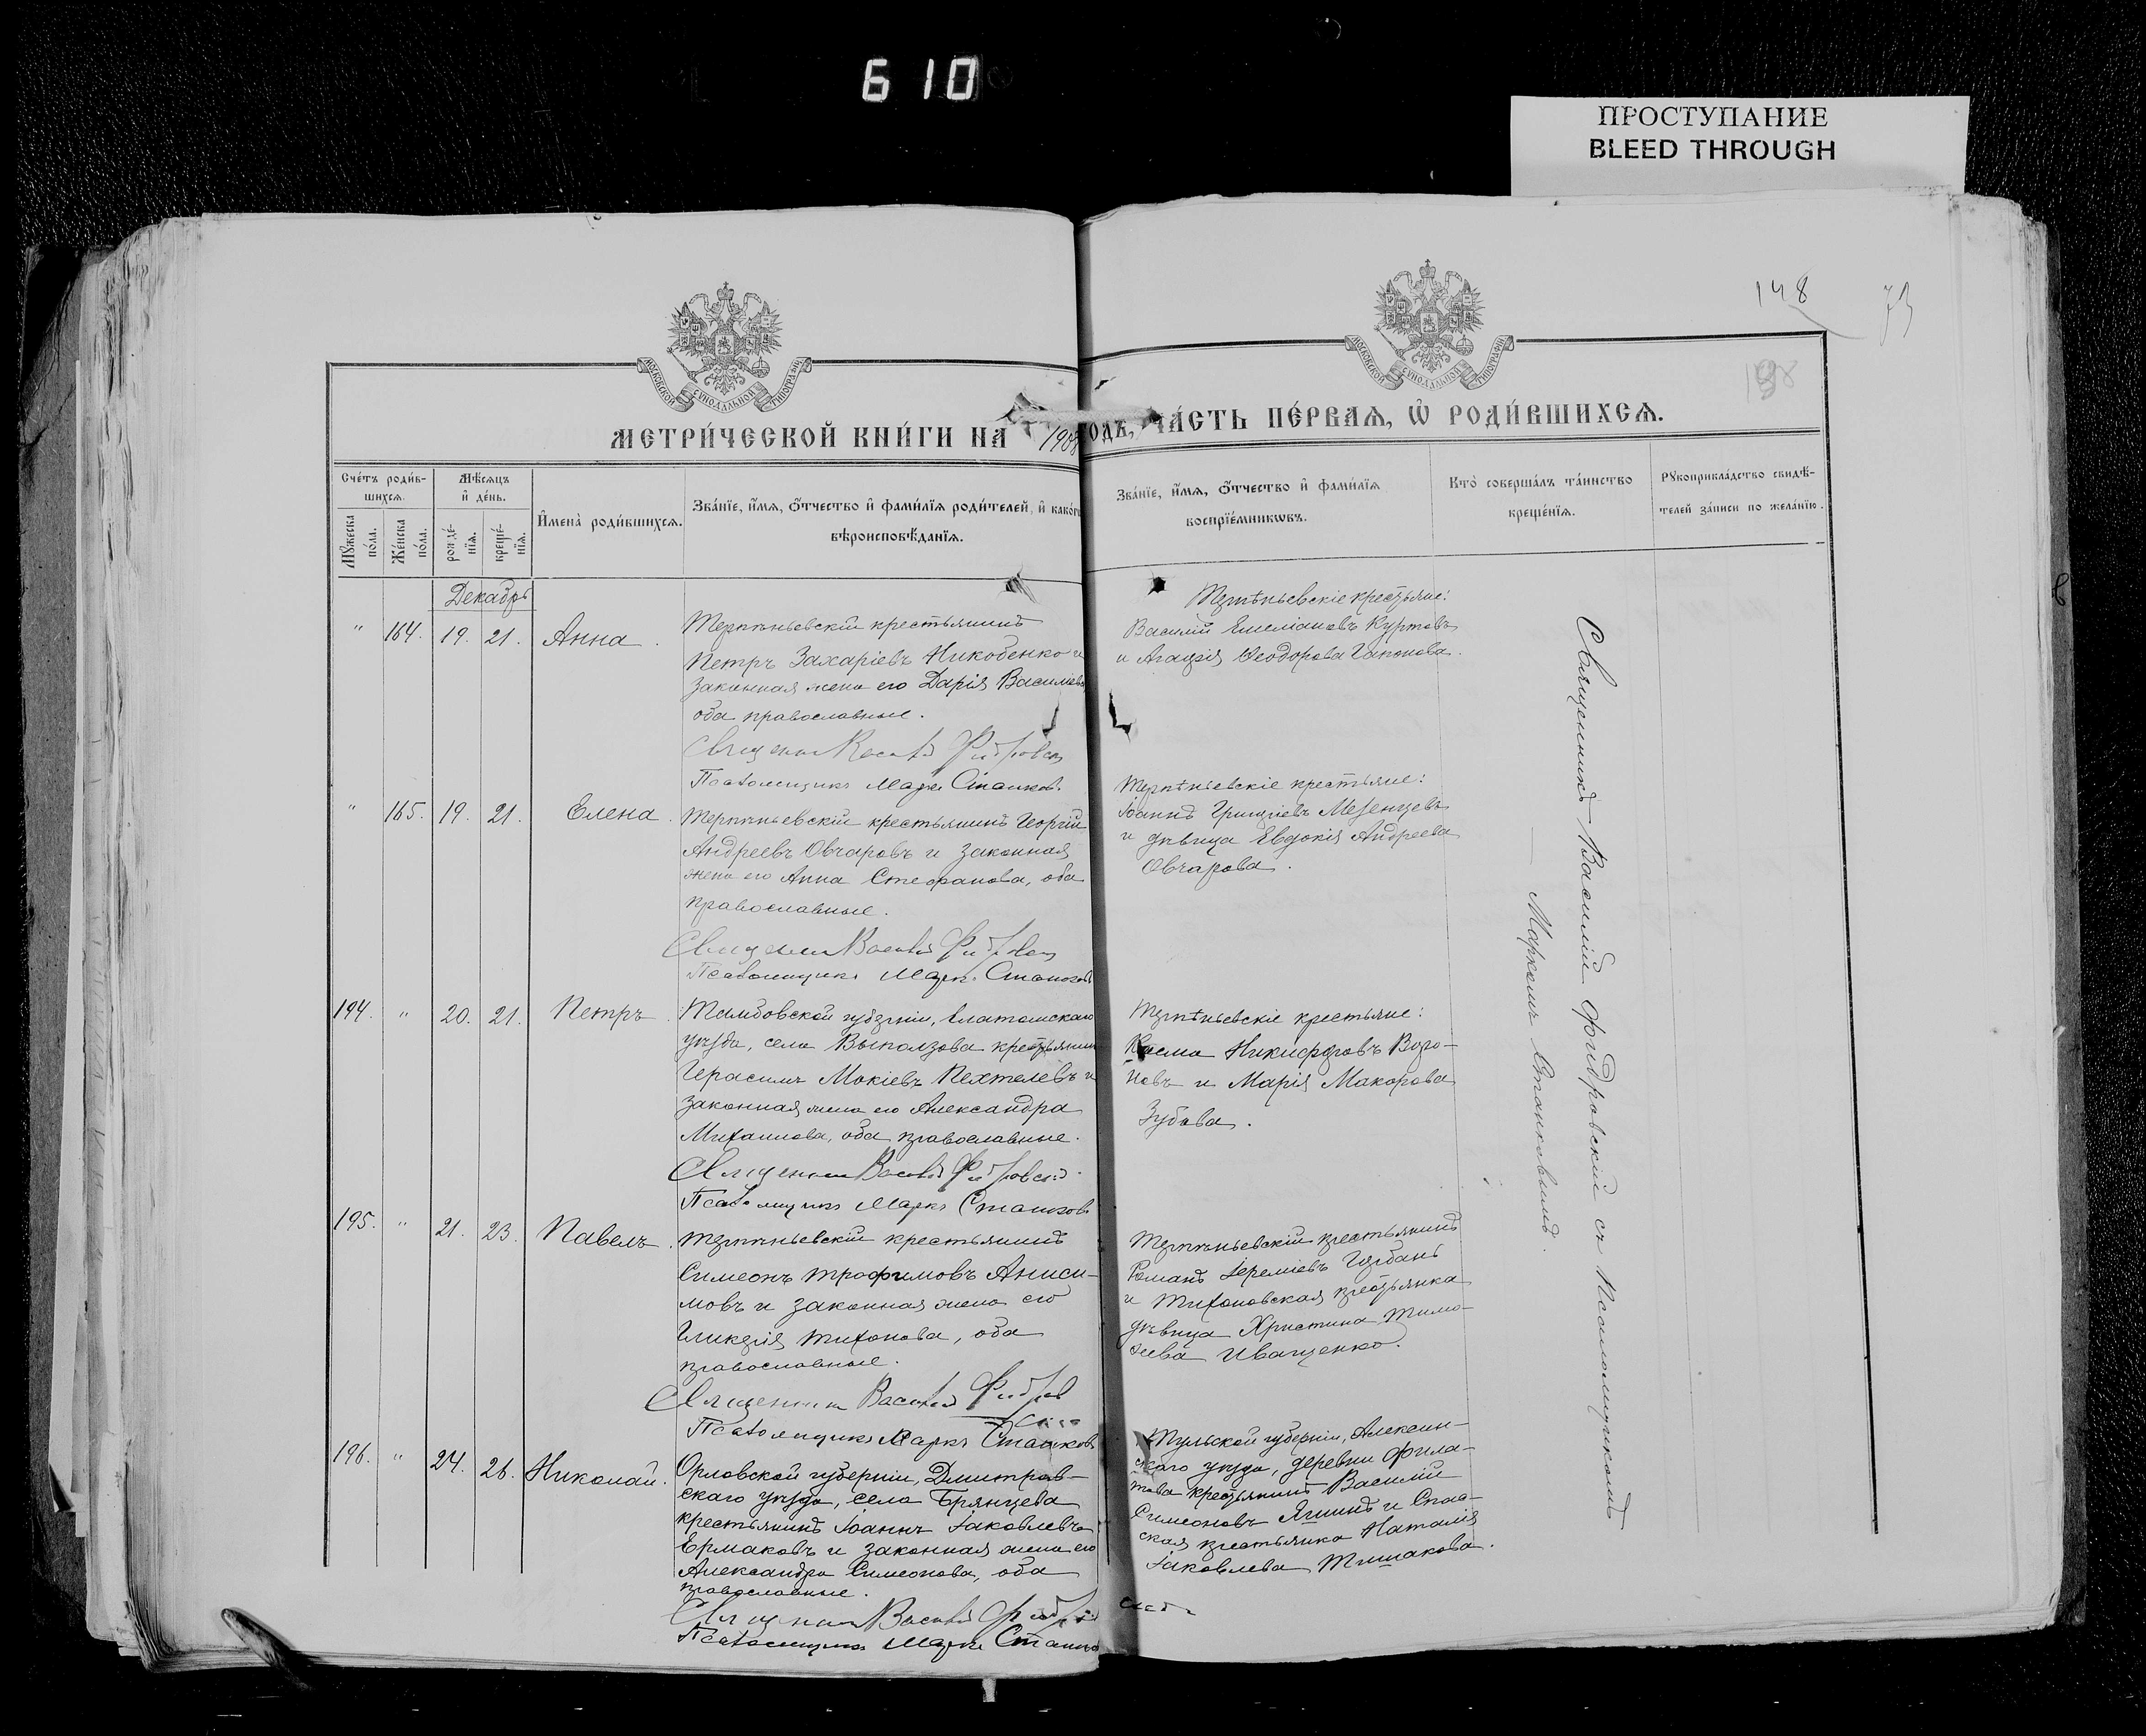 610
ПРОСТУПАНИЕ
BLEED THROUGH
148
73
МОСКОВСКОЙ СѴНОДАЛЬНОЙ ТИПОГРАФІИ
МОСКОВСКОЙ СѴНОДАЛЬНОЙ ТИПОГРАФІИ
МЕТРИ́ЧЕСКОЙ КНИ́ГИ НА 1908 ОДЪ, ЧА́СТЬ ПЕ́РВАѦ, Ѽ РОДИ́ВШИХСѦ.
Сче́тъ роди́в-
шихсѧ.
Мꙋ́жеска по́ла.
Же́нска по́ла.
Мѣ́сѧцъ и де́нь.
рожде́-
нїѧ.
креще́-
нїѧ.
И҆мена̀ роди́вшихсѧ.
Зва́нїе, и҆́мѧ, ѻ҆́тчество и҆ фами́лїѧ роди́телей, и҆ како́гѡ
вѣроисповѣ́данїѧ.
Зва́нїе, и҆́мѧ, ѻ҆́тчество и҆ фами́лїѧ
воспрїе́мникѡвъ.
Кто̀ соверша́лъ та́инство
креще́нїѧ.
Рꙋкоприкла́дство свидѣ́-
телей за́писи по жела́нїю.
Декабрь
" 164. 19. 21. Анна.
Терпѣньевскій крестьянинъ
Петръ Захаріевъ Никобенко и
законная жена его Дарія Василіева
оба православные.
Священникъ Василій Фидровскій
Псаломщикъ Маркъ Станков
Терпѣньевскіе крестьяне:
Василій Емеліановъ Куртовъ
и Агафія Ѳеодорова Гапонова.
" 165. 19. 21. Елена.
Терпѣньевскій крестьянинъ Георгій
Андреевъ Овчаровъ и законная
жена его Анна Стефанова, оба
православные.
Священникъ Василій Фидровскій
Псаломщикъ Маркъ Станков
Терпѣньевскіе крестьяне:
Іоаннъ Григоріевъ Мезенцевъ
и дѣвица Евдокія Андреева
Овчарова.
194. " 20. 21. Петръ.
Тамбовской губерніи, Елатомскаго
уѣзда, села Выползова крестьянин
Герасимъ Мокіевъ Пехтелевъ и
законная жена его Александра
Михаилова, оба православные.
Священникъ Василій Фидровскій
Псаломщикъ Маркъ Станков
Терпѣньевскіе крестьяне:
Косма Никифоровъ Воро-
новъ и Марія Макарова
Зубова.
195. " 21. 23. Павелъ.
Терпѣньевскій крестьянинъ
Симеонъ Трофимовъ Аниси-
мовъ и законная жена его
Гликерія Тихонова, оба
православные.
Священникъ Василій Фидровскій
Псаломщикъ Маркъ Станков
Терпѣньевскій крестьянинъ
Романъ Іереміевъ Гурбанъ
и Тихоновская крестьянка
дѣвица Христина Тимо-
ѳеева Иващенко.
196. " 24. 26. Николай.
Орловской губерніи, Дмитров-
скаго уѣзда, села Брянцева
крестьянинъ Іоаннъ Іаковлевъ
Ермаковъ и законная жена его
Александра Симеонова, оба
православные.
Священникъ Василій Фидровскій
Псаломщикъ Маркъ Станков
Тульской губерніи, Алексин-
скаго уѣзда, деревни Фила-
това крестьянинъ Василій
Симеоновъ Яшинъ и Спас-
ская крестьянка Наталія
Іаковлева Тишакова.
Священникъ Василій Фидровскій съ Псаломщикомъ
Маркомъ Станковымъ.